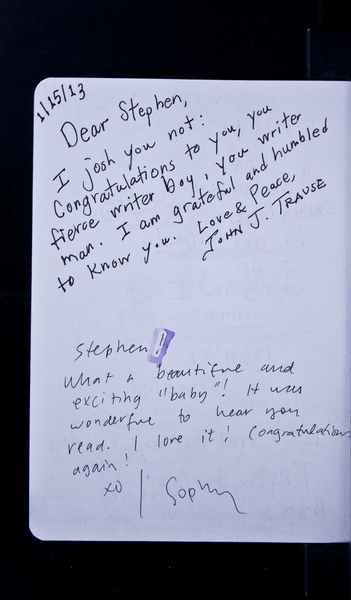 1/15/13
Dear Stephen,
I josh you not:
Congratulations to you, you
fierce writer boy, you writer
man. I am grateful and humbled
to know you. Love & Peace,
JOHN J. TRAUSE
Stephen
What a beautiful and
exciting "baby"! It was
wonderful to hear you
read. I love it! Congratulations
again!
xo | Sophia